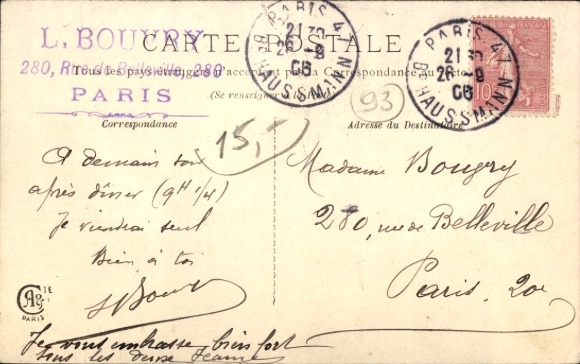 L. BOUVRY
280, Rue de Belleville, 280
PARIS
CARTE POSTALE
Tous les pays étrangers n'acceptent pas la Correspondance au recto
(Se renseigner à la Poste)
PARIS 47
21 30
26 - 9
06
Bd HAUSSMANN
PARIS 47
21 30
26 - 9
06
Bd HAUSSMANN
10
93
15,-
Correspondance
Adresse du Destinataire
A demain soir
après dîner (9H 1/4)
Je viendrai seul
Bien à toi
Madame Bougry
280, rue de Belleville
Paris, 20e
CIE
PARIS
Je vous embrasse bien fort
tous les deux Jeanne